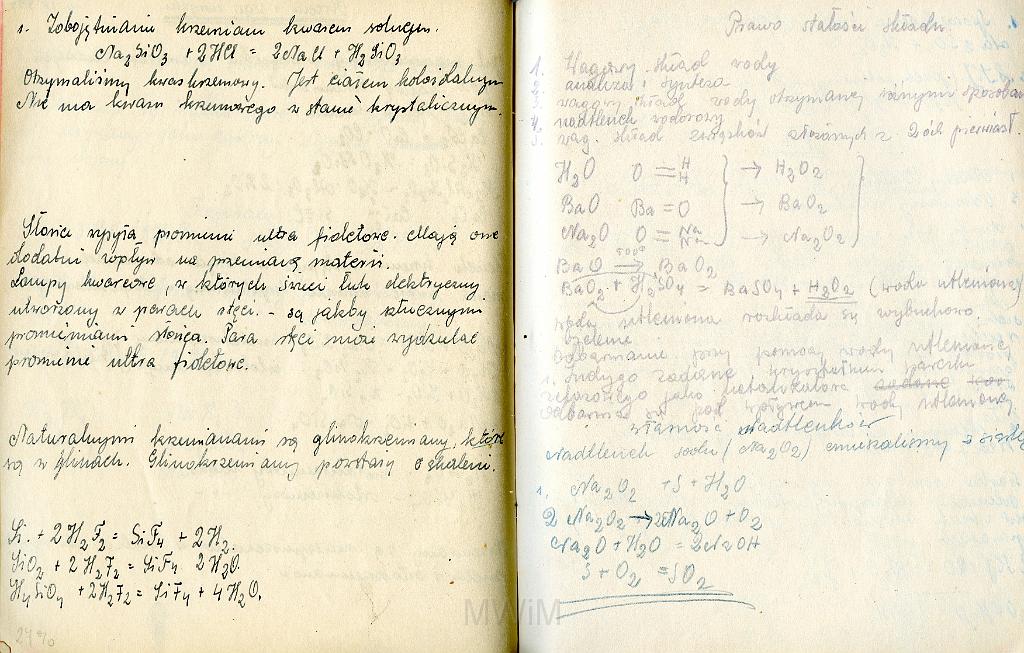 1. Zobojętnianie krzemianu kwasem solnym.
Na₂SiO₃ + 2HCl = 2NaCl + H₂SiO₃
Otrzymaliśmy kwas krzemowy. Jest ciałem koloidalnym
Nie ma kwasu krzemowego w stanie krystalicznym.
Słońce wysyła promienie ultra fioletowe. Mają one
dodatni wpływ na przemianę materii.
Lampy kwarcowe, w których świeci łuk elektryczny
utworzony w parach rtęci. - są jakby sztucznymi
promieniami słońca. Para rtęci może wydzielać
promienie ultra fioletowe.
Naturalnymi krzemianami są glinokrzemiany, które
są w glinach. Glinokrzemiany powstają
Si + 2H₂F₂ = SiF₄ + 2H₂.
SiO₂ + 2H₂F₂ = SiF₄ 2H₂O.
H₄SiO₄ + 2H₂F₂ = SiF₄ + 4H₂O.
Prawo stałości składu.
1. Wagowy skład wody
2. analiza i synteza
3. wagowy skład wody otrzymanej różnymi sposobami
4. nadtlenek wodorowy
5. wag. skład związków złożonych z 2óch pierwiast.
H₂O O = H H → H₂O₂
BaO Ba = O → BaO₂
Na₂O O = Na Na → Na₂O₂
BaO 500° → BaO₂
BaO₂ + H₂SO₄ = BaSO₄ + H₂O₂ (woda utleniona)
woda utleniona rozkłada się wybuchowo.
bielenie
Odbarwianie przy pomocy wody utlenionej
1. Indygo zadane kryształkiem siarczku
żelazowego jako katalizatora zadane
odbarwia się pod wpływem wody utlenionej
własność nadtlenków
Nadtlenek sodu (Na₂O₂) zmieszaliśmy z siarką
1. Na₂O₂ + S + H₂O
2 Na₂O₂ → 2Na₂O + O₂
Na₂O + H₂O = 2NaOH
S + O₂ = SO₂
MWiM